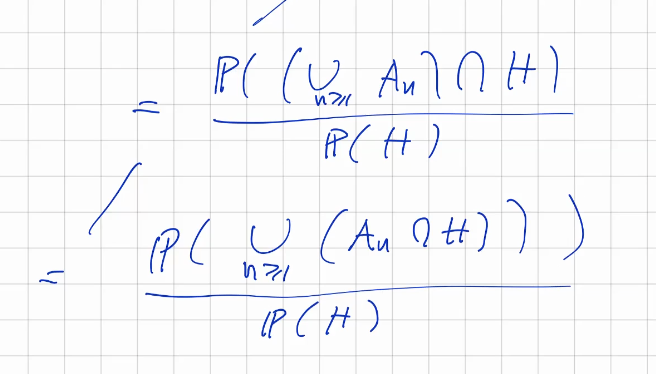 = ℙ( (∪_{n≥1} A_n) ∩ H) / ℙ(H)
= ℙ( ∪_{n≥1} (A_n ∩ H) ) ) / ℙ(H)